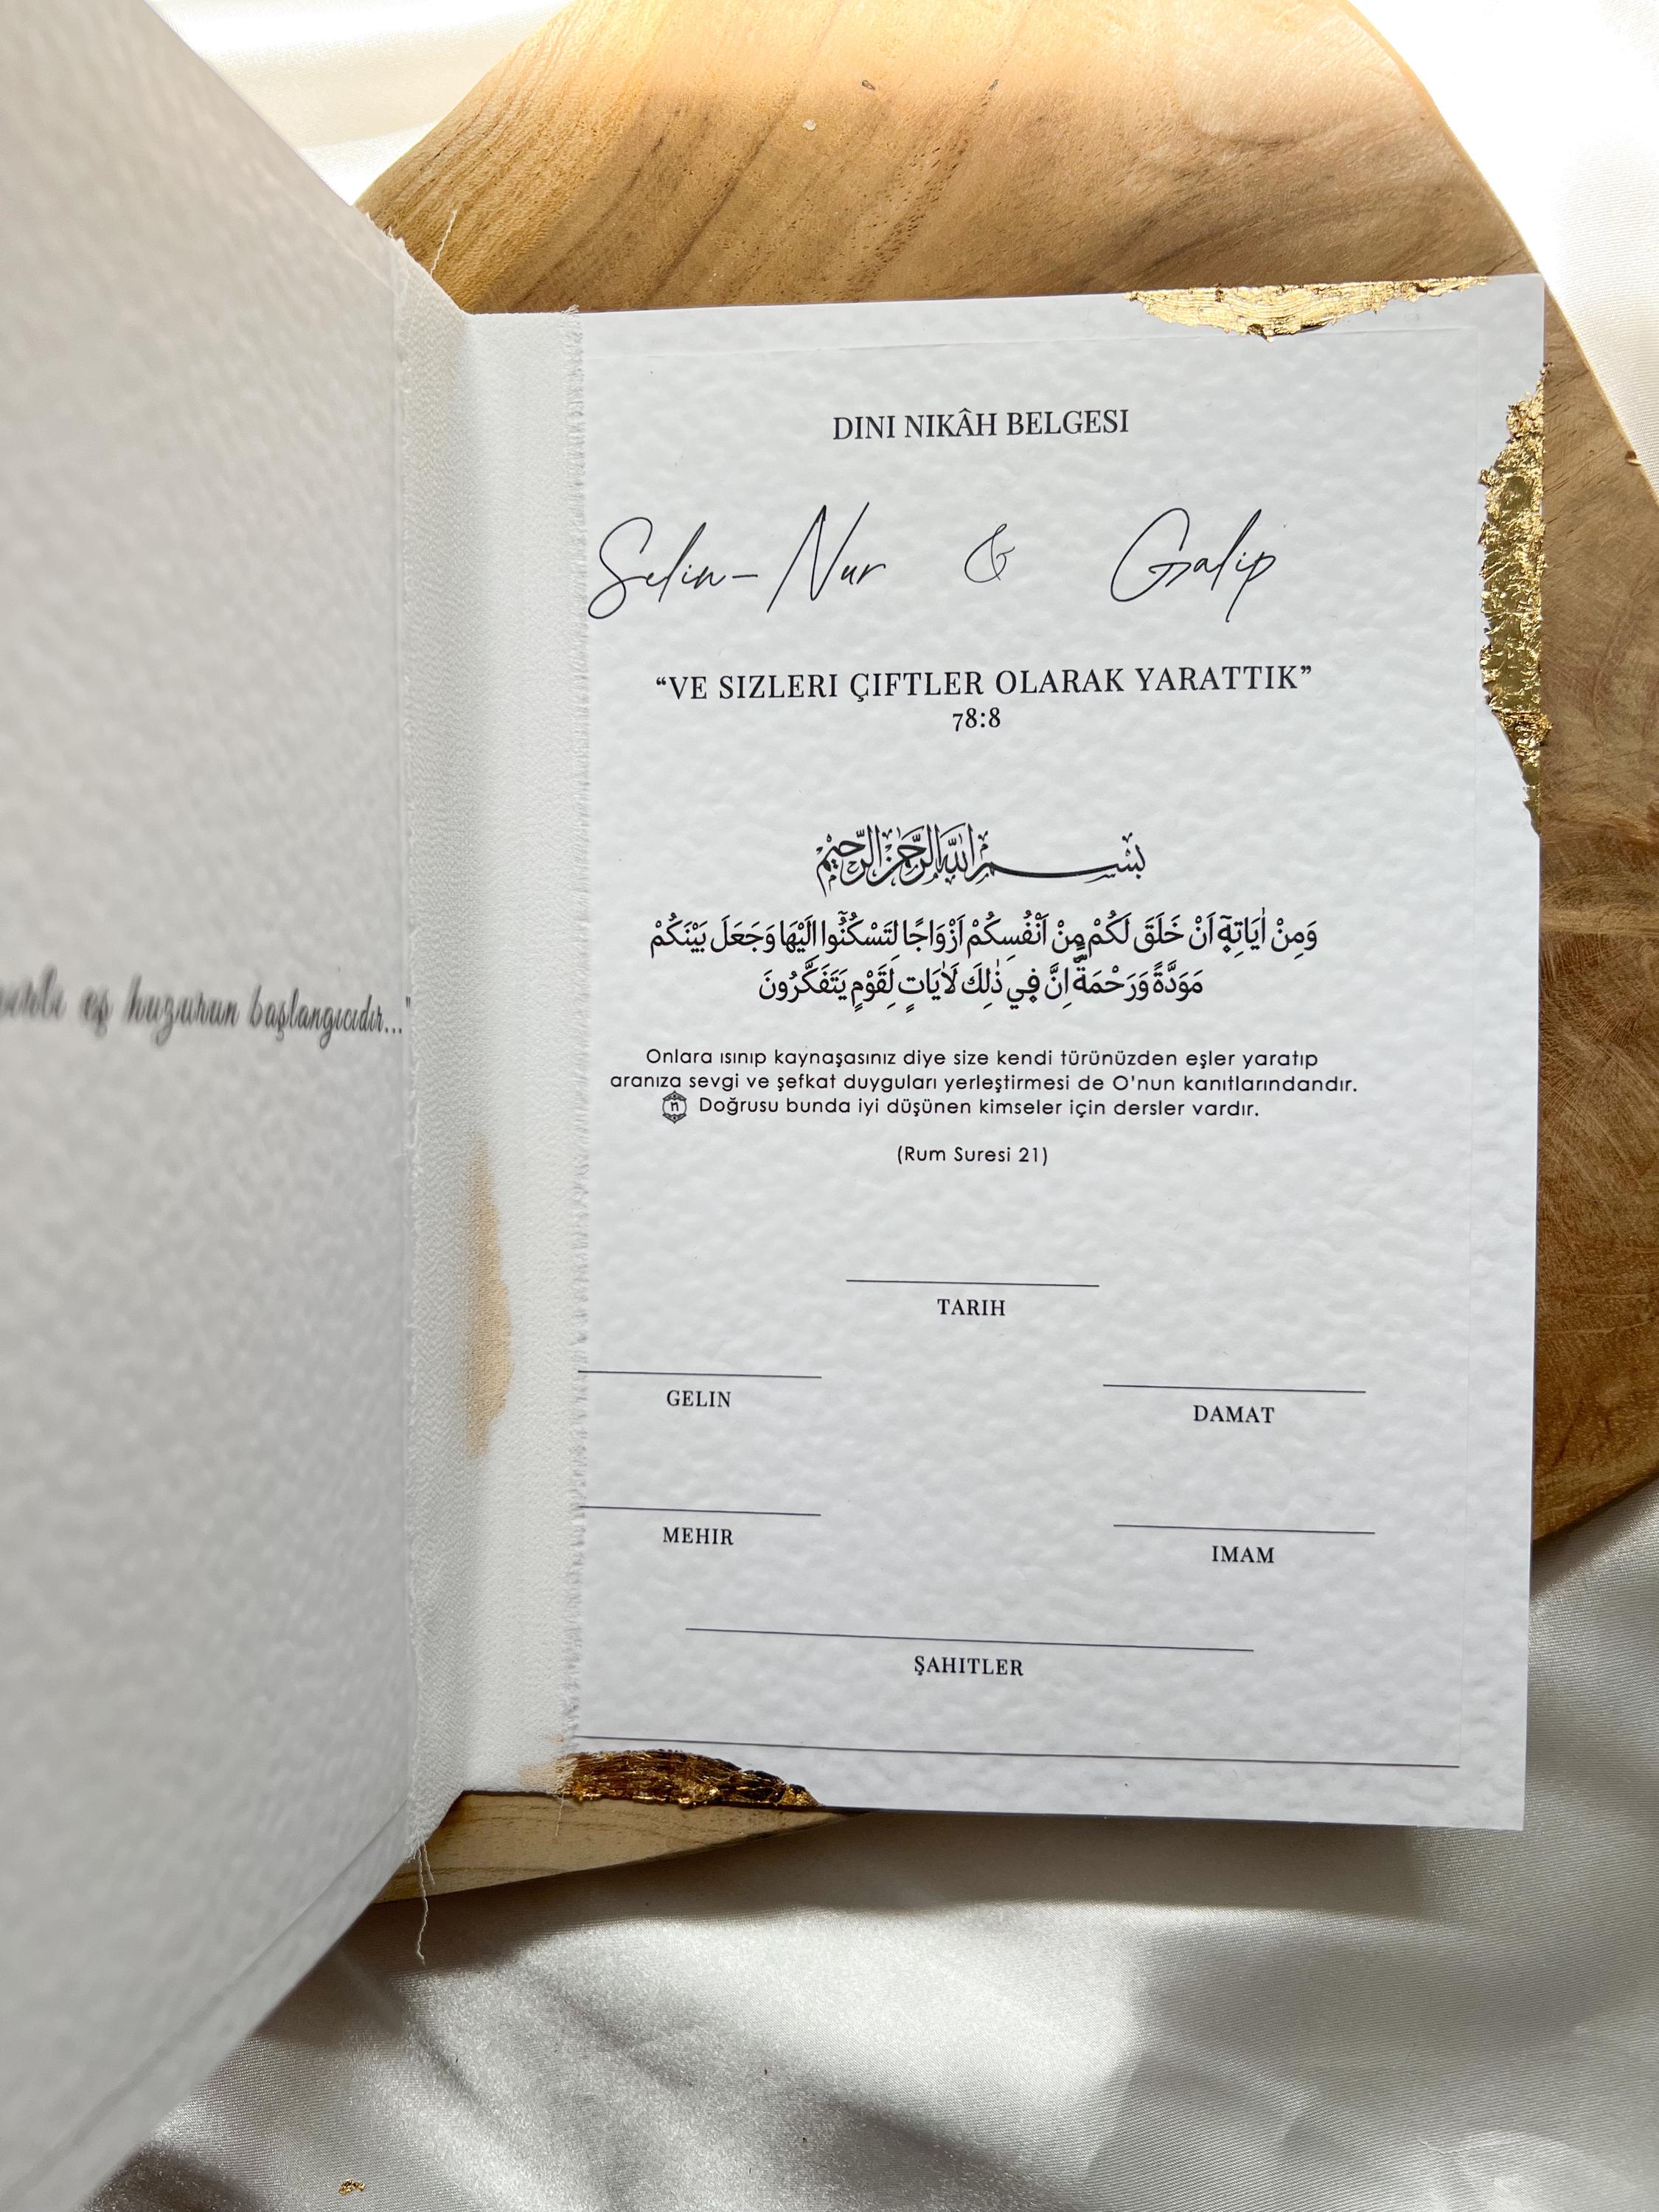 eş huzurun başlangıcıdır..."
DINI NIKÂH BELGESI
Selin-Nur & Galip
“VE SIZLERI ÇIFTLER OLARAK YARATTIK”
78:8
بسم الله الرحمن الرحيم
وَمِنْ اٰيَاتِه۪ٓ اَنْ خَلَقَ لَكُمْ مِنْ اَنْفُسِكُمْ اَزْوَاجًا لِتَسْكُنُٓوا اِلَيْهَا وَجَعَلَ بَيْنَكُمْ
مَوَدَّةً وَرَحْمَةًۜ اِنَّ ف۪ي ذٰلِكَ لَاٰيَاتٍ لِقَوْمٍ يَتَفَكَّرُونَ
Onlara ısınıp kaynaşasınız diye size kendi türünüzden eşler yaratıp
aranıza sevgi ve şefkat duyguları yerleştirmesi de O'nun kanıtlarındandır.
n Doğrusu bunda iyi düşünen kimseler için dersler vardır.
(Rum Suresi 21)
TARIH
GELIN DAMAT
MEHIR IMAM
ŞAHITLER